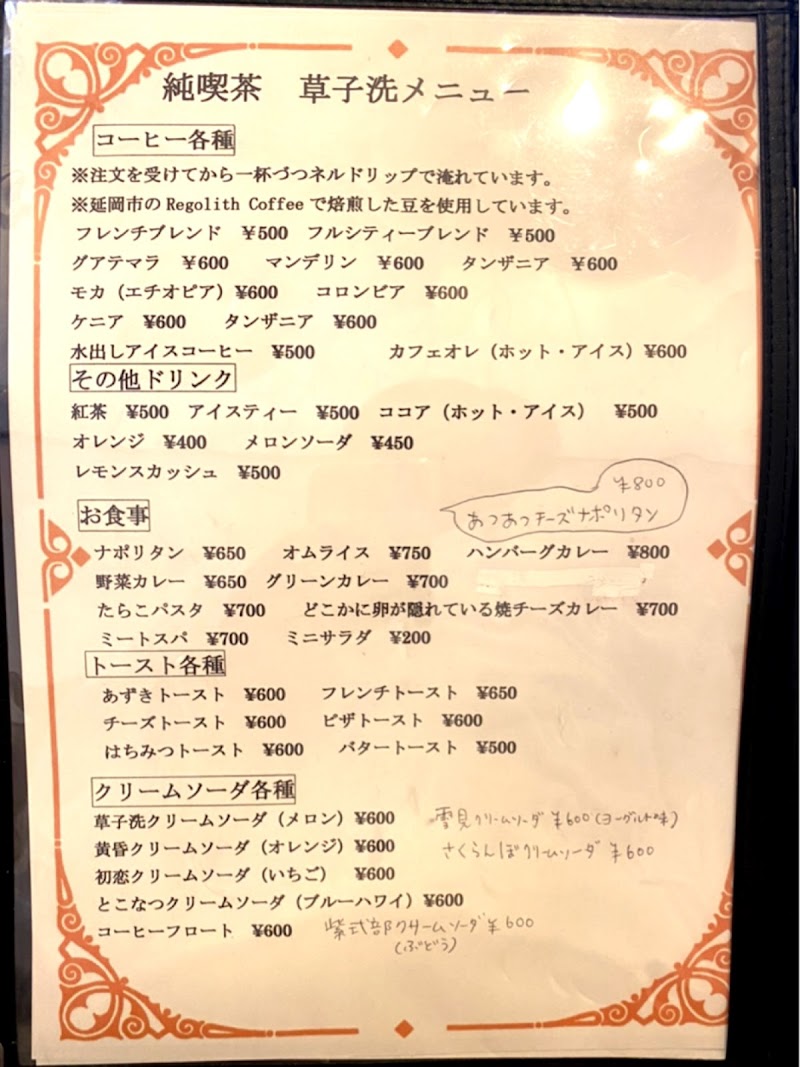 純喫茶　草子洗メニュー
コーヒー各種
※注文を受けてから一杯づつネルドリップで淹れています。
※延岡市のRegolith Coffeeで焙煎した豆を使用しています。
フレンチブレンド　¥500　フルシティーブレンド　¥500
グアテマラ　¥600　マンデリン　¥600　タンザニア　¥600
モカ（エチオピア）¥600　コロンビア　¥600
ケニア　¥600　タンザニア　¥600
水出しアイスコーヒー　¥500　カフェオレ（ホット・アイス）¥600
その他ドリンク
紅茶　¥500　アイスティー　¥500　ココア（ホット・アイス）　¥500
オレンジ　¥400　メロンソーダ　¥450
レモンスカッシュ　¥500
¥800
お食事　あつあつチーズナポリタン
ナポリタン　¥650　オムライス　¥750　ハンバーグカレー　¥800
野菜カレー　¥650　グリーンカレー　¥700
たらこパスタ　¥700　どこかに卵が隠れている焼チーズカレー　¥700
ミートスパ　¥700　ミニサラダ　¥200
トースト各種
あずきトースト　¥600　フレンチトースト　¥650
チーズトースト　¥600　ピザトースト　¥600
はちみつトースト　¥600　バタートースト　¥500
クリームソーダ各種
草子洗クリームソーダ（メロン）¥600　雪見クリームソーダ ¥600（ヨーグルト味）
黄昏クリームソーダ（オレンジ）¥600　さくらんぼクリームソーダ ¥600
初恋クリームソーダ（いちご）　¥600
とこなつクリームソーダ（ブルーハワイ）¥600
コーヒーフロート　¥600　紫式部クリームソーダ ¥600
（ぶどう）